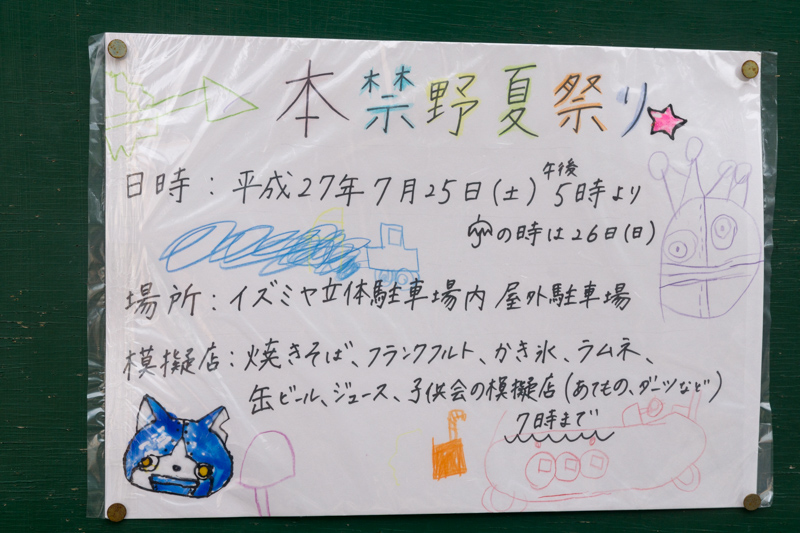 本禁野夏祭り
日時：平成27年7月25日(土)午後5時より
の時は26日(日)
場所：イズミヤ立体駐車場内 屋外駐車場
模擬店：焼きそば、フランクフルト、かき氷、ラムネ、
缶ビール、ジュース、子供会の模擬店(あてもの、ダーツなど)
7時まで